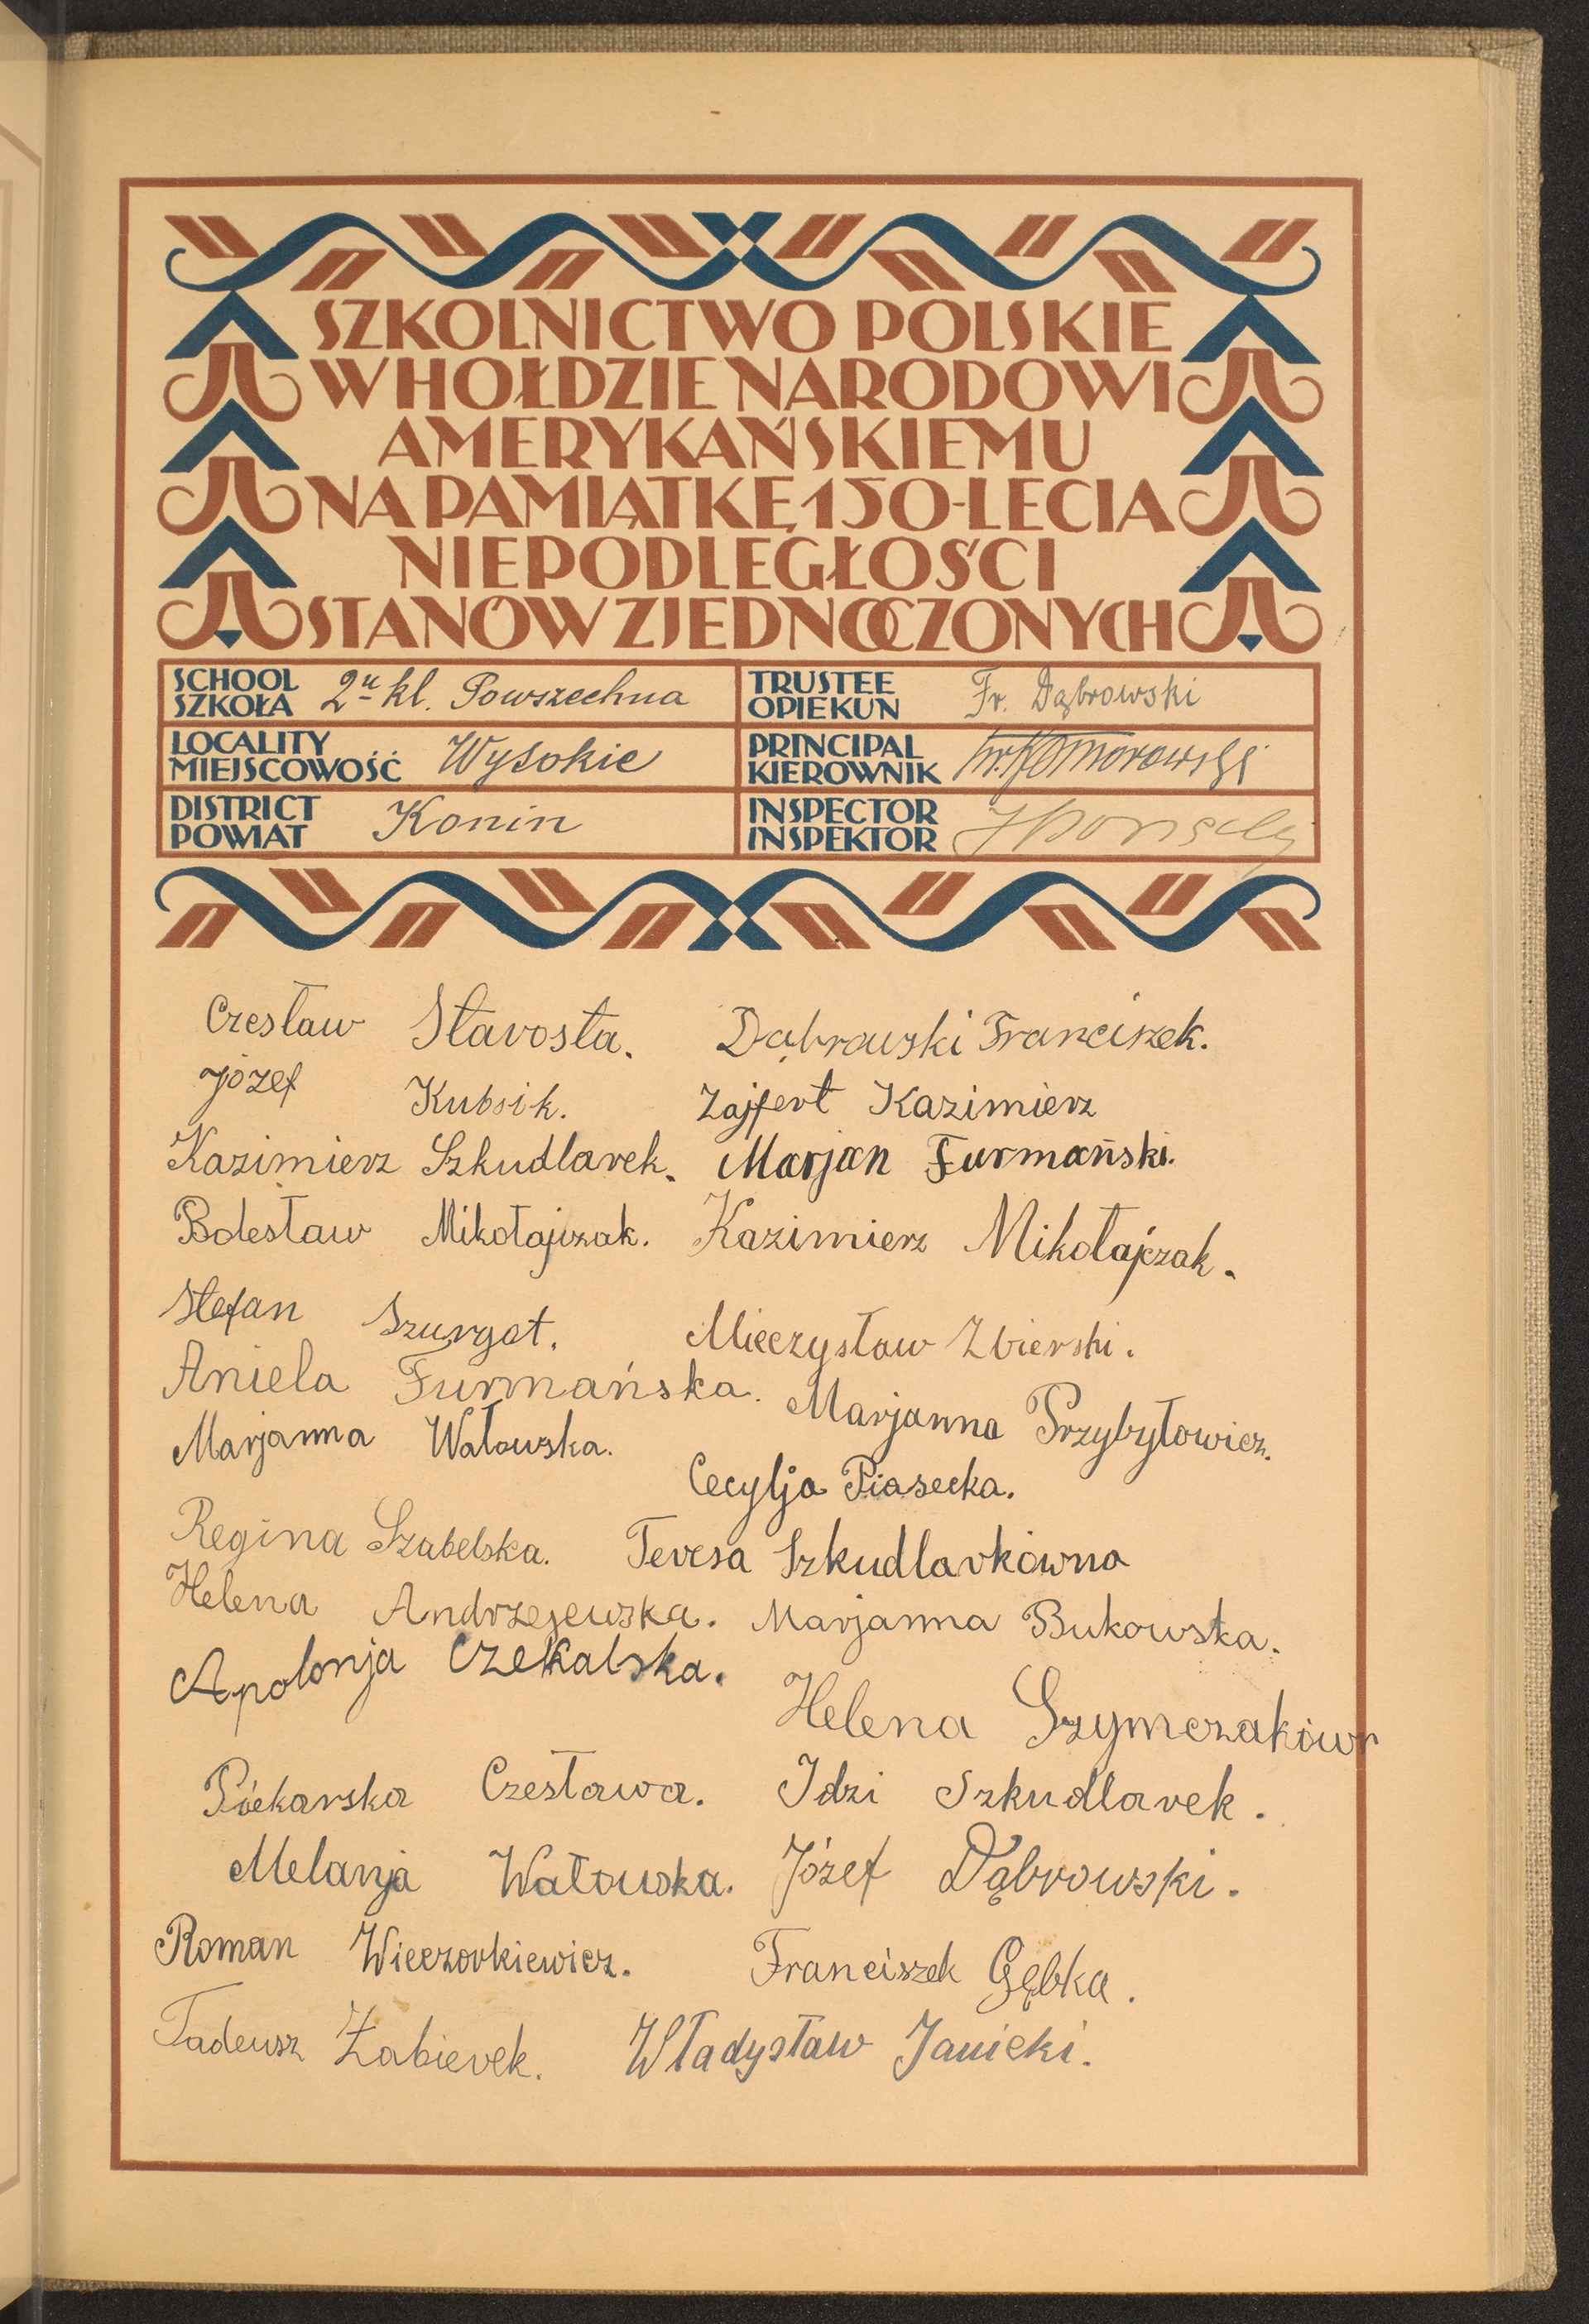 SZKOLNICTWO POLSKIE
W HOŁDZIE NARODOWI
AMERYKAŃSKIEMU
NA PAMIĄTKĘ 150-LECIA
NIEPODLEGŁOŚCI
STANÓW ZJEDNOCZONYCH
SCHOOL
SZKOŁA 2u kl. Powszechna
TRUSTEE
OPIEKUN Fr. Dąbrowski
LOCALITY
MIEJSCOWOŚĆ Wysokie
PRINCIPAL
KIEROWNIK Komorowski
DISTRICT
POWIAT Konin
INSPECTOR
INSPEKTOR
Czesław Starosta. Dąbrowski Franciszek.
Józef Kubsik. Zajfert Kazimierz
Kazimierz Szkudlarek. Marjan Furmański.
Bolesław Mikołajczak. Kazimierz Mikołajczak.
Stefan Szurgot. Mieczysław Zbierski.
Aniela Furmańska. Marjanna Przybyłowicz.
Marjanna Watowska. Cecylja Piasecka.
Regina Szabelska. Teresa Szkudlarkówna
Helena Andrzejewska. Marjanna Bukowska.
Apolonja Czekalska. Helena Szymczakówn
Piekarska Czesława. Idzi Szkudlarek.
Melanja Watowska. Józef Dąbrowski.
Roman Wieczorkiewicz. Franciszek Gębka.
Tadeusz Żabierek. Władysław Janicki.